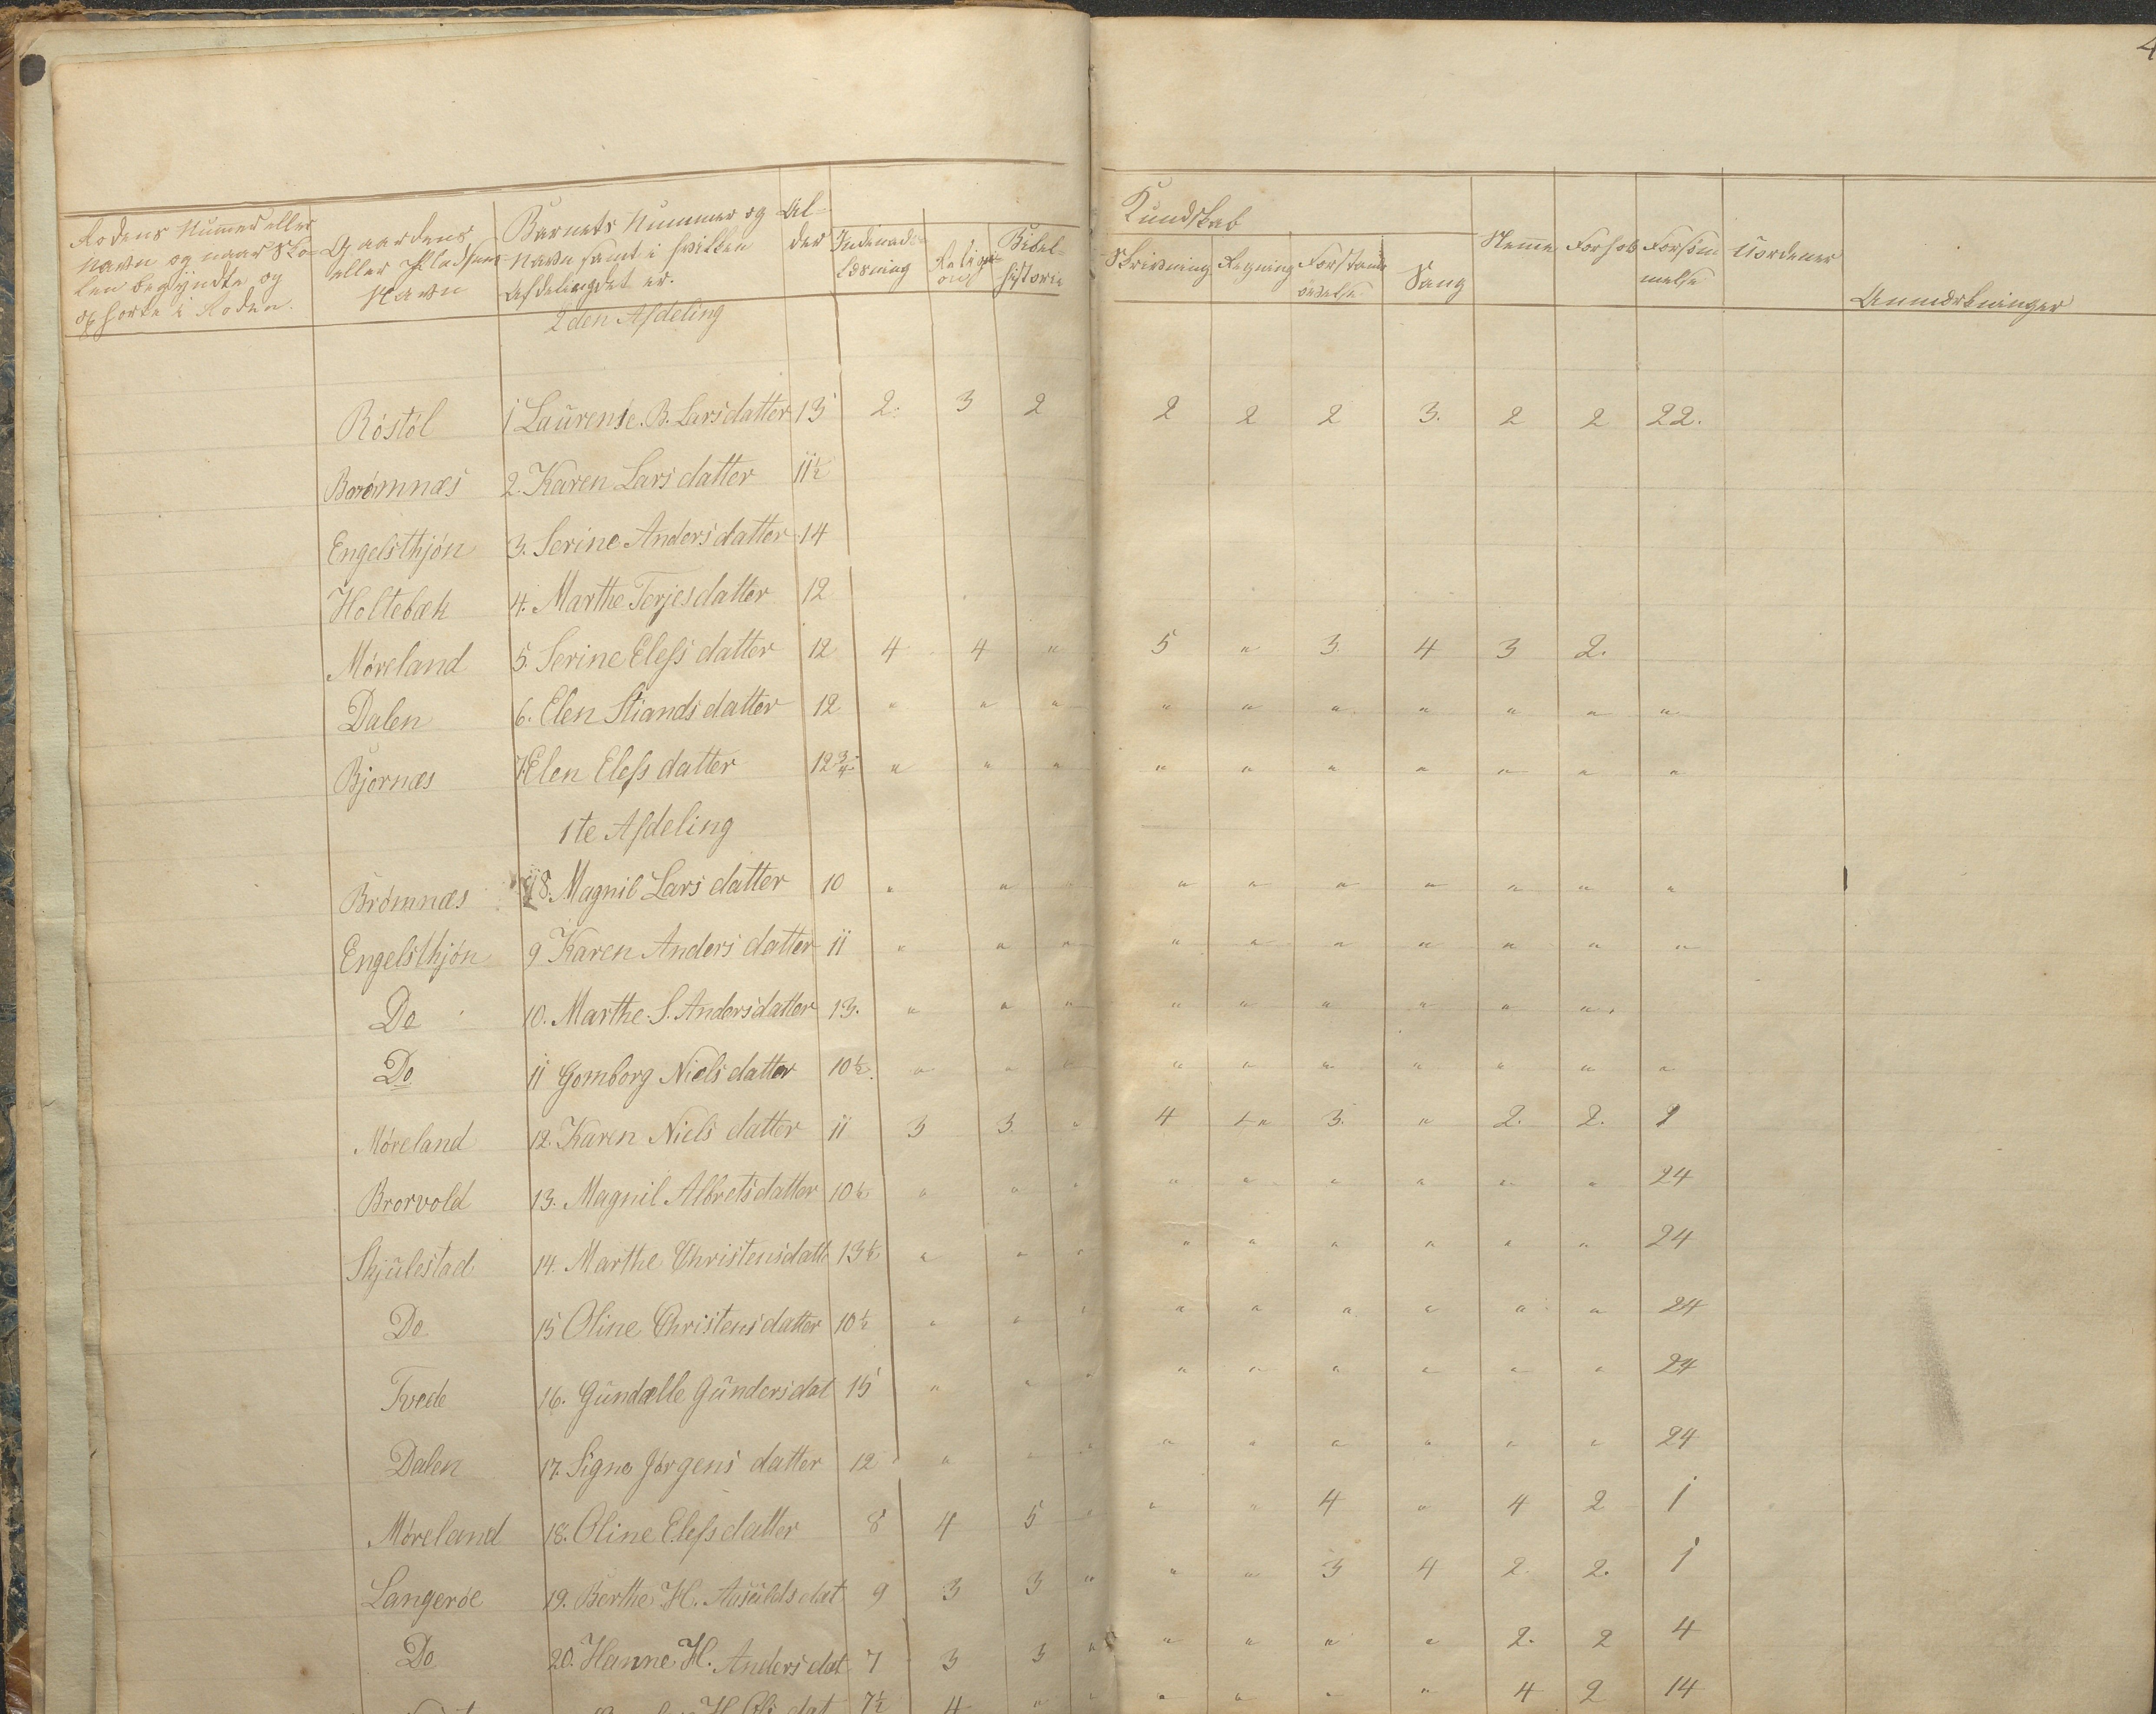 4
Rodens Nummer eller Navn og naar Skolen begyndte og ophorte i Roden.
Gaardens eller Pladsens Navn
Barnets Nummer og Navn samt i hvilken Afdeling det er.
Alder
Indenadslæsning
Religion
Bibelhistorie
Kundskab
Skrivning
Regning
Forstandsøvelse
Sang
Nemme
Forhold
Forsømmelse
Uordener
Anmærkninger
2den Afdeling
Röstöl 1 Laurense. B. Larsdatter 13 2. 3 2 2 2 2 3. 2 2 22.
Brömnæs 2. Karen Larsdatter 11½
Engelsthjön 3. Serine Andersdatter 14
Holtebæk 4. Marthe Terjesdatter 12
Möreland 5. Serine Elefsdatter 12 4 4 " 5 " 3. 4 3 2.
Dalen 6. Elen Stiandsdatter 12 " " " " " " " " " "
Bjornæs 7 Elen Elefsdatter 12¾ " " " " " " " " " "
1te Afdeling
Brömnæs 8. Magnil Larsdatter 10 " " " " " " " " " "
Engelsthjön 9 Karen Andersdatter 11 " " " " " " " " " "
Do 10. Marthe. S. Andersdatter 13. " " " " " " " " "
Do 11 Gomborg Nielsdatter 10½. " " " " " " " " " "
Möreland 12. Karen Nielsdatter 11 3 3. " 4 " 3. " 2. 2.
Brorvold 13. Magnil Albretsdatter 10½ " " " " " " " " " 24
Skjulestad 14. Marthe Christensdatt 13½ " " " " " " " " " 24
Do 15 Oline Christensdatter 10½ " " " " " " " " " 24
Tvede 16. Gundælle Gundersdat 15 " " " " " " " " " 24
Dalen 17. Signe Jörgensdatter 12 " " " " " " " " " 24
Möreland 18. Oline Elefsdatter 8 4 5 " " " 4 " 4 2 1
Langeröe 19. Berthe H. Asuldsdat 9 3 3 " " " 3 4 2. 2. 1
Do 20. Hanne H. Andersdat 7 3 3 " " " " " 2. 2 4
7½ 4 " " " " " " 4 2 14